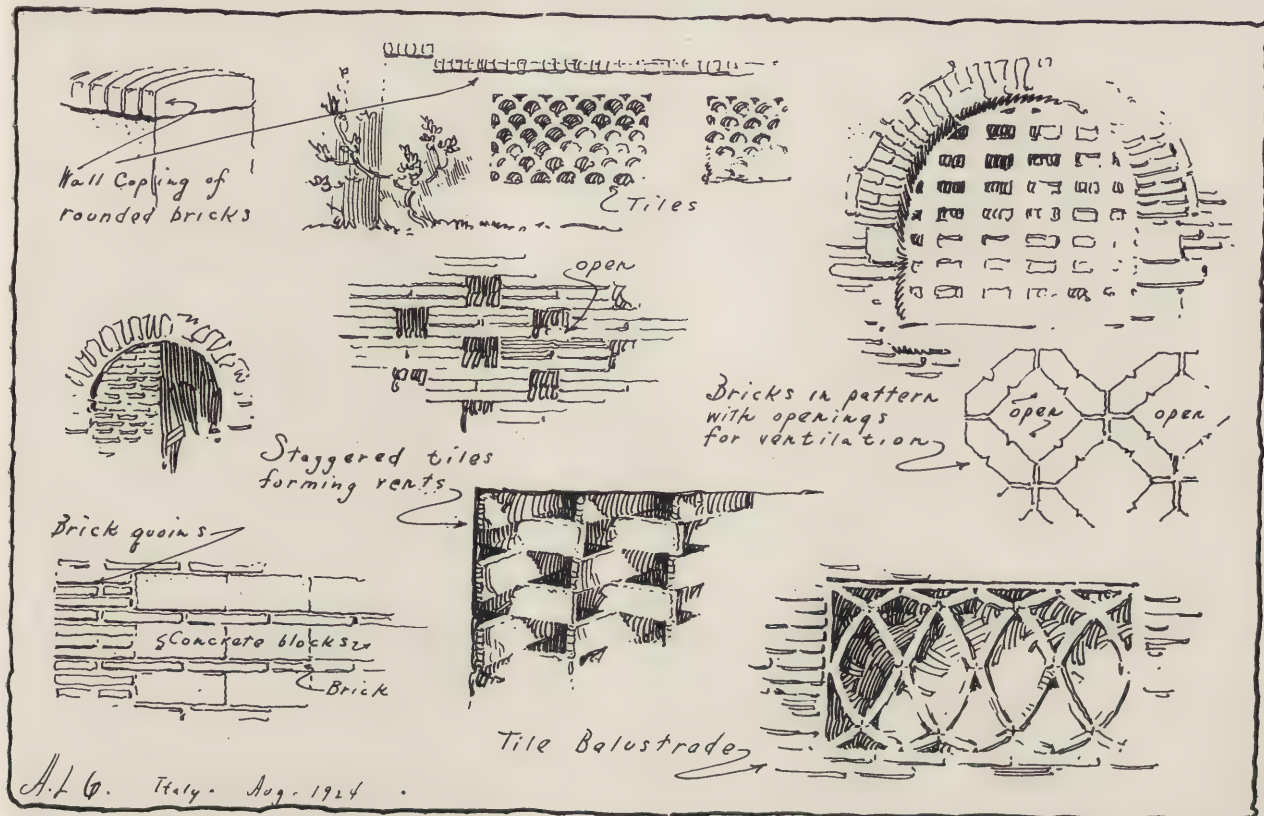 Wall Coping of
rounded bricks
Tiles
open
Bricks in pattern
with openings
for ventilation
open
open
Staggered tiles
forming vents
Brick quoins
Concrete blocks
Brick
Tile Balustrade
A.L.G. Italy - Aug - 1924.